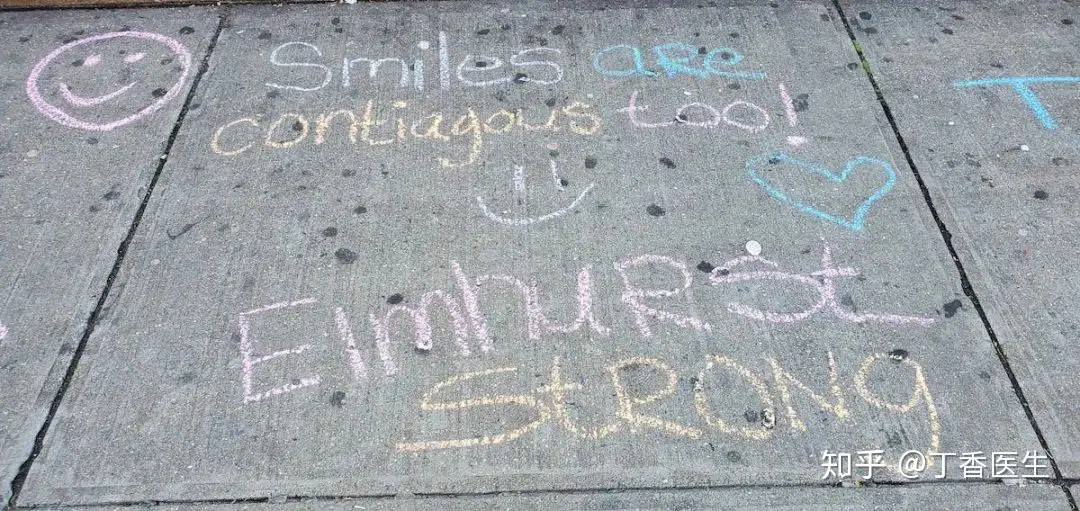 Smiles are
contiagous too!
T
Elmhurst
StRONg
知乎 @丁香医生